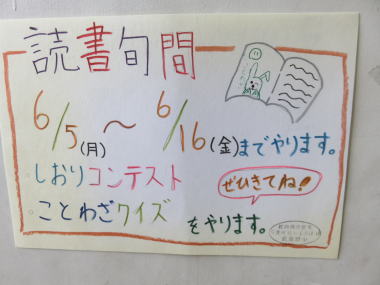 読書旬間
6/5(月)～6/16(金)までやります。
しおりコンテスト
ぜひきてね!
ことわざクイズ
をやります。